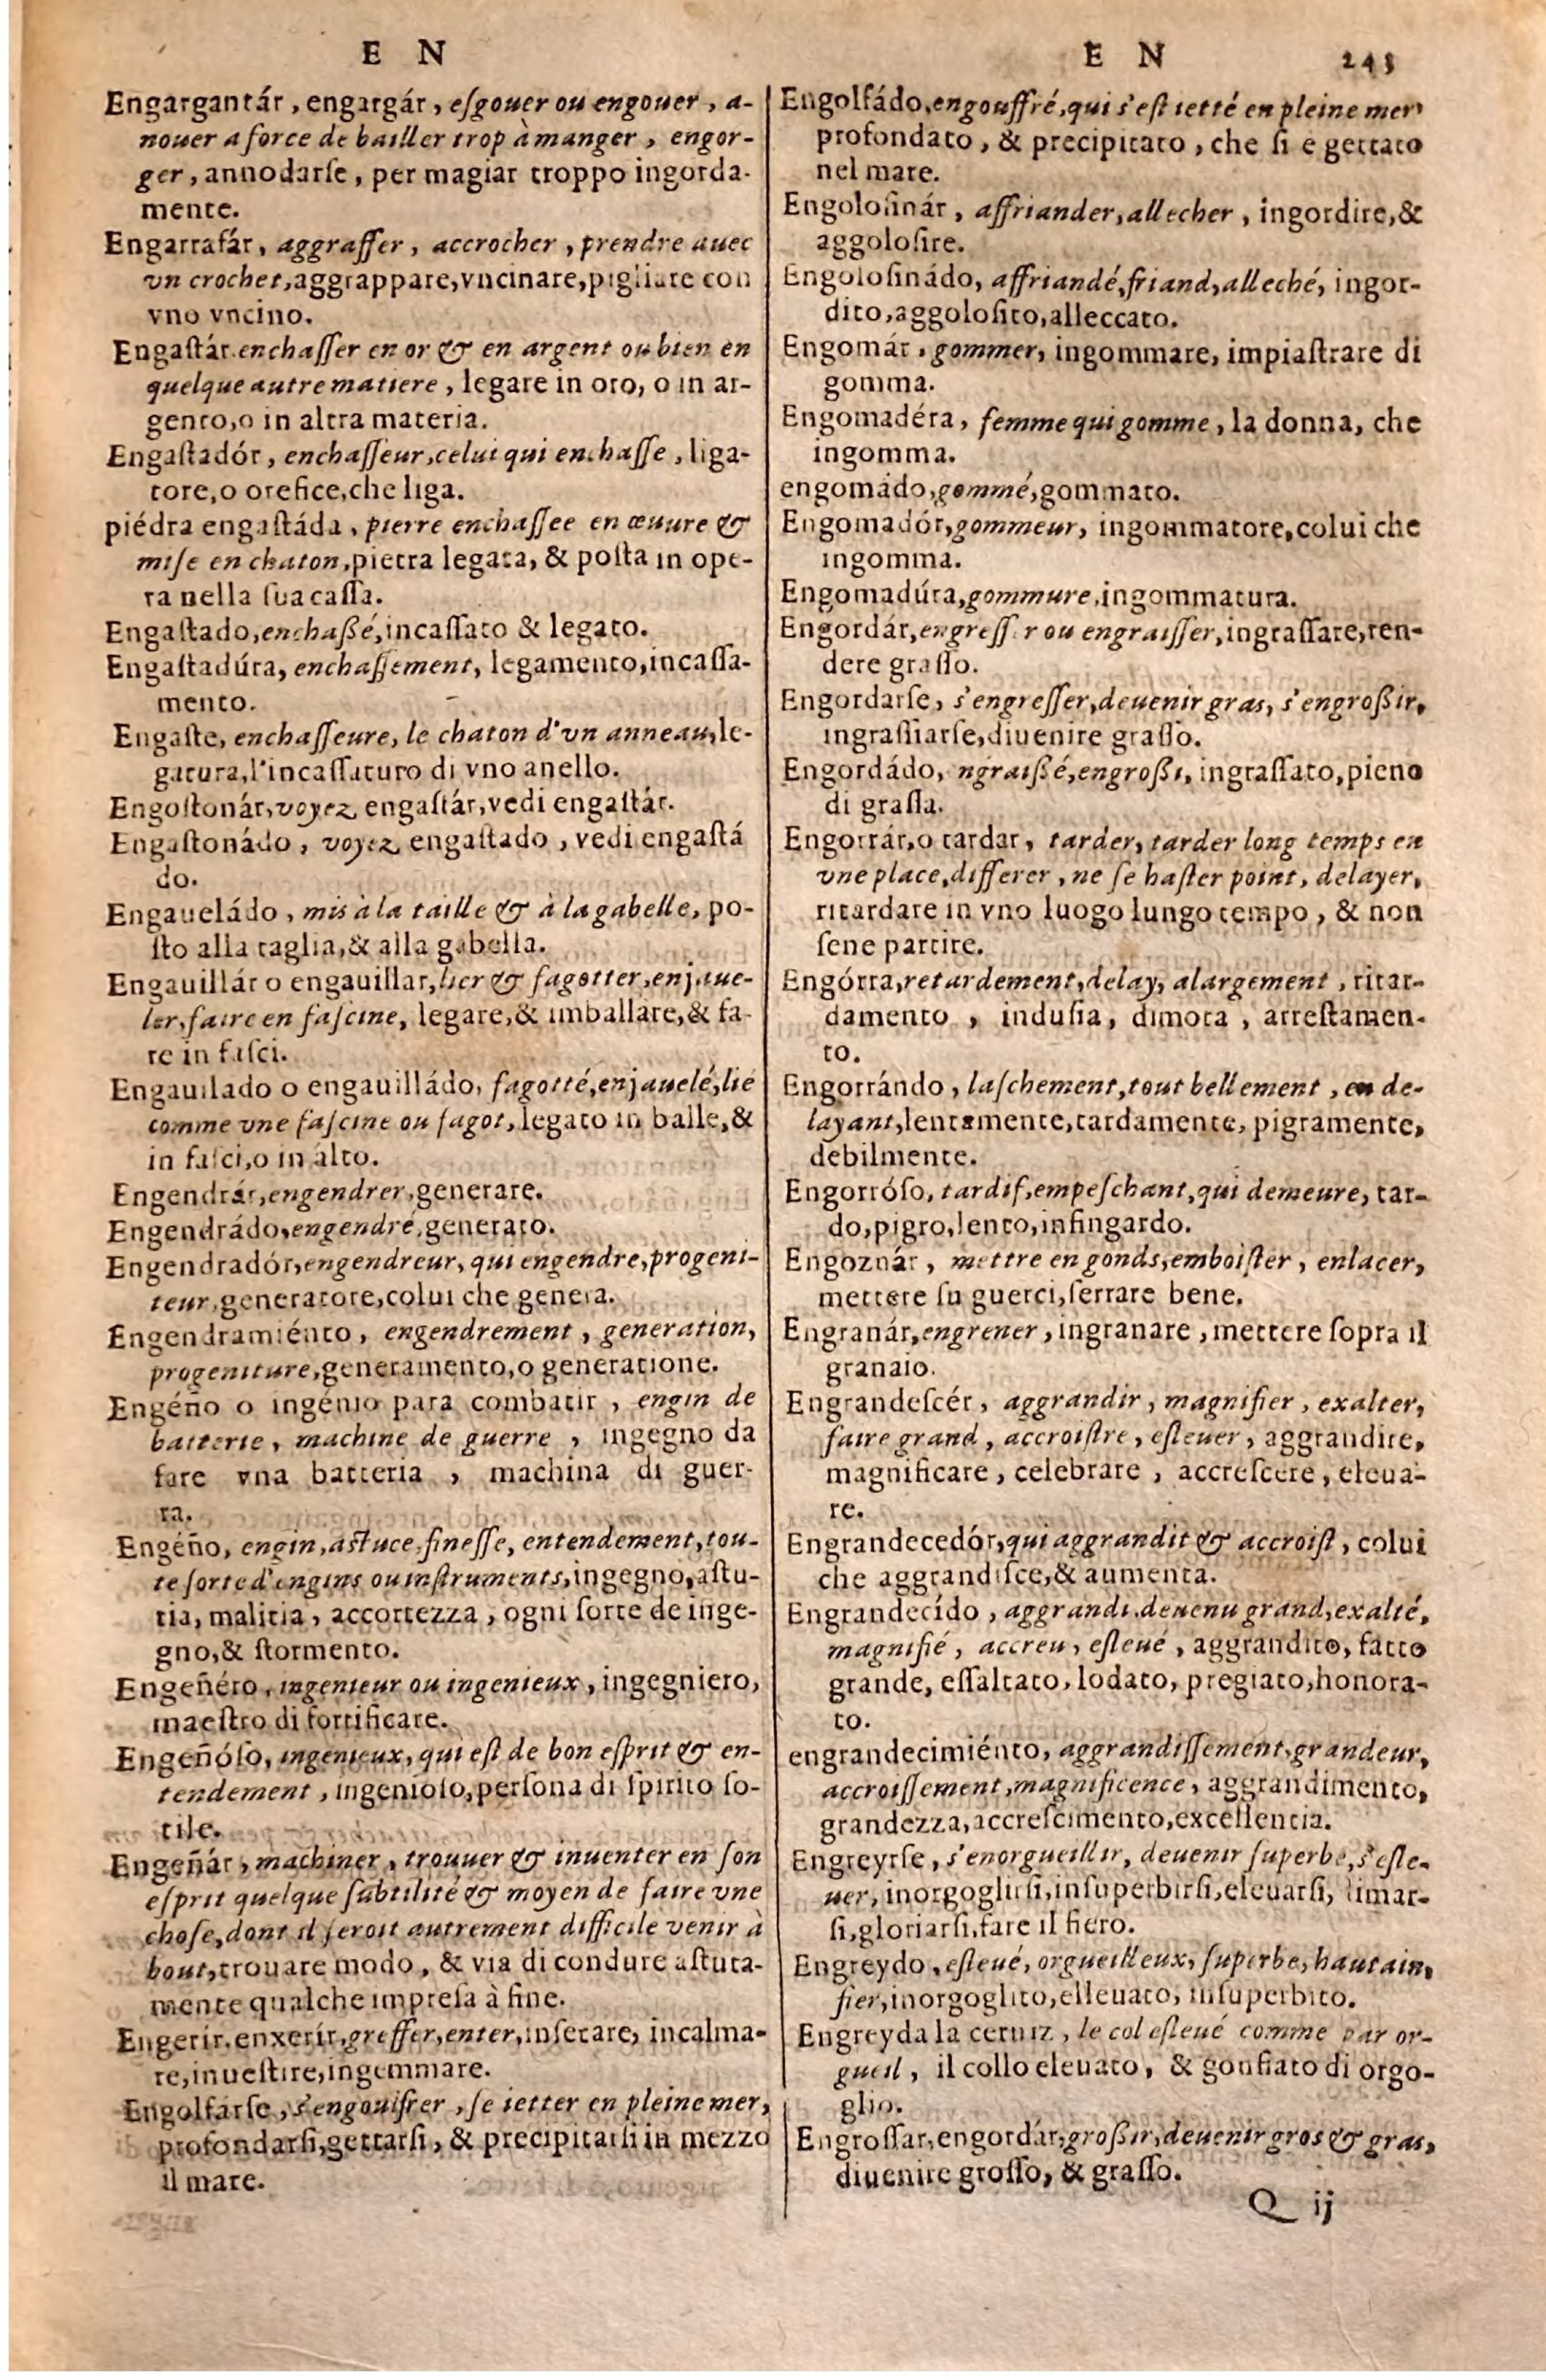 E N
Engargantár, engargár, eſgouer ou engouer, a-
nouer a force de bailler trop à manger, engor-
ger, annodarſe, per magiar troppo ingorda-
mente.
Engarrafár, aggraffer, accrocher, prendre auec
vn crochet, aggrappare, vncinare, pigliare con
vno vncino.
Engaſtár, enchaſſer en or & en argent ou bien en
quelque autre matiere, legare in oro, o in ar-
gento, o in altra materia.
Engaſtadór, enchaſſeur, celui qui enchaſſe, liga-
tore, o orefice, che liga.
piédra engaſtáda, pierre enchaſſee en œuure &
miſe en chaton, pietra legata, & poſta in ope-
ra nella ſua caſſa.
Engaſtado, enchaßé, incaſſato & legato.
Engaſtadúra, enchaſſement, legamento, incaſſa-
mento.
Engaſte, enchaſſeure, le chaton d'vn anneau, le-
gatura, l'incaſſaturo di vno anello.
Engoſtonár, voyez engaſtár, vedi engaſtár.
Engaſtonádo, voyez engaſtado, vedi engaſtá
do.
Engaueládo, mis à la taille & à la gabelle, po-
ſto alla taglia, & alla gabella.
Engauillár o engauillar, lier & fagotter, enjaue-
ler, faire en faſcine, legare, & imballare, & fa-
re in faſci.
Engauilado o engauilládo, fagotté, enjauelé, lié
comme vne faſcine ou fagot, legato in balle, &
in faſci, o in alto.
Engendrár, engendrer, generare.
Engendrádo, engendré, generato.
Engendradór, engendreur, qui engendre, progeni-
teur, generatore, colui che genera.
Engendramiénto, engendrement, generation,
progeniture, generamento, o generatione.
Engéño o ingénio para combatir, engin de
batterie, machine de guerre, ingegno da
fare vna batteria, machina di guer-
ra.
Engéño, engin, aſtuce, fineſſe, entendement, tou-
te ſorte d'engins ou inſtruments, ingegno, aſtu-
tia, malitia, accortezza, ogni ſorte de inge-
gno, & ſtormento.
Engeñéro, ingenieur ou ingenieux, ingegniero,
maeſtro di fortificare.
Engeñóſo, ingenieux, qui eſt de bon eſprit & en-
tendement, ingenioſo, perſona di ſpirito ſo-
tile.
Engeñár, machiner, trouuer & inuenter en ſon
eſprit quelque ſubtilité & moyen de faire vne
choſe, dont il ſeroit autrement difficile venir à
bout, trouare modo, & via di condure aſtuta-
mente qualche impreſa à fine.
Engerir, enxerir, greffer, enter, inſetare, incalma-
re, inueſtire, ingemmare.
Engolfárſe, s'engouffrer, ſe ietter en pleine mer,
profondarſi, gettarſi, & precipitarſi in mezzo
il mare.
E N 243
Engolfádo, engouffré, qui s'eſt ietté en pleine mer,
profondato, & precipitato, che ſi e gettato
nel mare.
Engoloſinár, affriander, allecher, ingordire, &
aggoloſire.
Engoloſinádo, affriandé, friand, alleché, ingor-
dito, aggoloſito, alleccato.
Engomár, gommer, ingommare, impiaſtrare di
gomma.
Engomadéra, femme qui gomme, la donna, che
ingomma.
engomádo, gommé, gommato.
Engomadór, gommeur, ingommatore, colui che
ingomma.
Engomadúra, gommure, ingommatura.
Engordár, engreſſer ou engraiſſer, ingraſſare, ren-
dere graſſo.
Engordarſe, s'engreſſer, deuenir gras, s'engroßir,
ingraſſiarſe, diuenire graſſo.
Engordádo, ngraißé, engroßi, ingraſſato, pieno
di graſſa.
Engorrár, o tardar, tarder, tarder long temps en
vne place, differer, ne ſe haſter point, delayer,
ritardare in vno luogo lungo tempo, & non
ſene partire.
Engórra, retardement, delay, alargement, ritar-
damento, induſia, dimora, arreſtamen-
to.
Engorrándo, laſchement, tout bellement, en de-
layant, lentamente, tardamente, pigramente,
debilmente.
Engorróſo, tardif, empeſchant, qui demeure, tar-
do, pigro, lento, infingardo.
Engoznár, mettre en gonds, emboiſter, enlacer,
mettere ſu guerci, ſerrare bene.
Engranár, engrener, ingranare, mettere ſopra il
granaio.
Engrandeſcér, aggrandir, magnifier, exalter,
faire grand, accroiſtre, eſleuer, aggrandire,
magnificare, celebrare, accreſcere, eleua-
re.
Engrandecedór, qui aggrandit & accroiſt, colui
che aggrandiſce, & aumenta.
Engrandecído, aggrandi, deuenu grand, exalté,
magnifié, accreu, eſleué, aggrandito, fatto
grande, eſſaltato, lodato, pregiato, honora-
to.
engrandecimiénto, aggrandiſſement, grandeur,
accroiſſement, magnificence, aggrandimento,
grandezza, accreſcimento, excellentia.
Engreyrſe, s'enorgueillir, deuenir ſuperbe, s'eſle-
uer, inorgoglirſi, inſuperbirſi, eleuarſi, ſtimar-
ſi, gloriarſi, fare il fiero.
Engreydo, eſleué, orgueilleux, ſuperbe, hautain,
fier, inorgoglito, elleuato, inſuperbito.
Engreyda la ceruiz, le col eſleué comme par or-
gueil, il collo eleuato, & gonfiato di orgo-
glio.
Engroſſar, engordár, großir, deuenir gros & gras,
diuenire groſſo, & graſſo.
Q ij